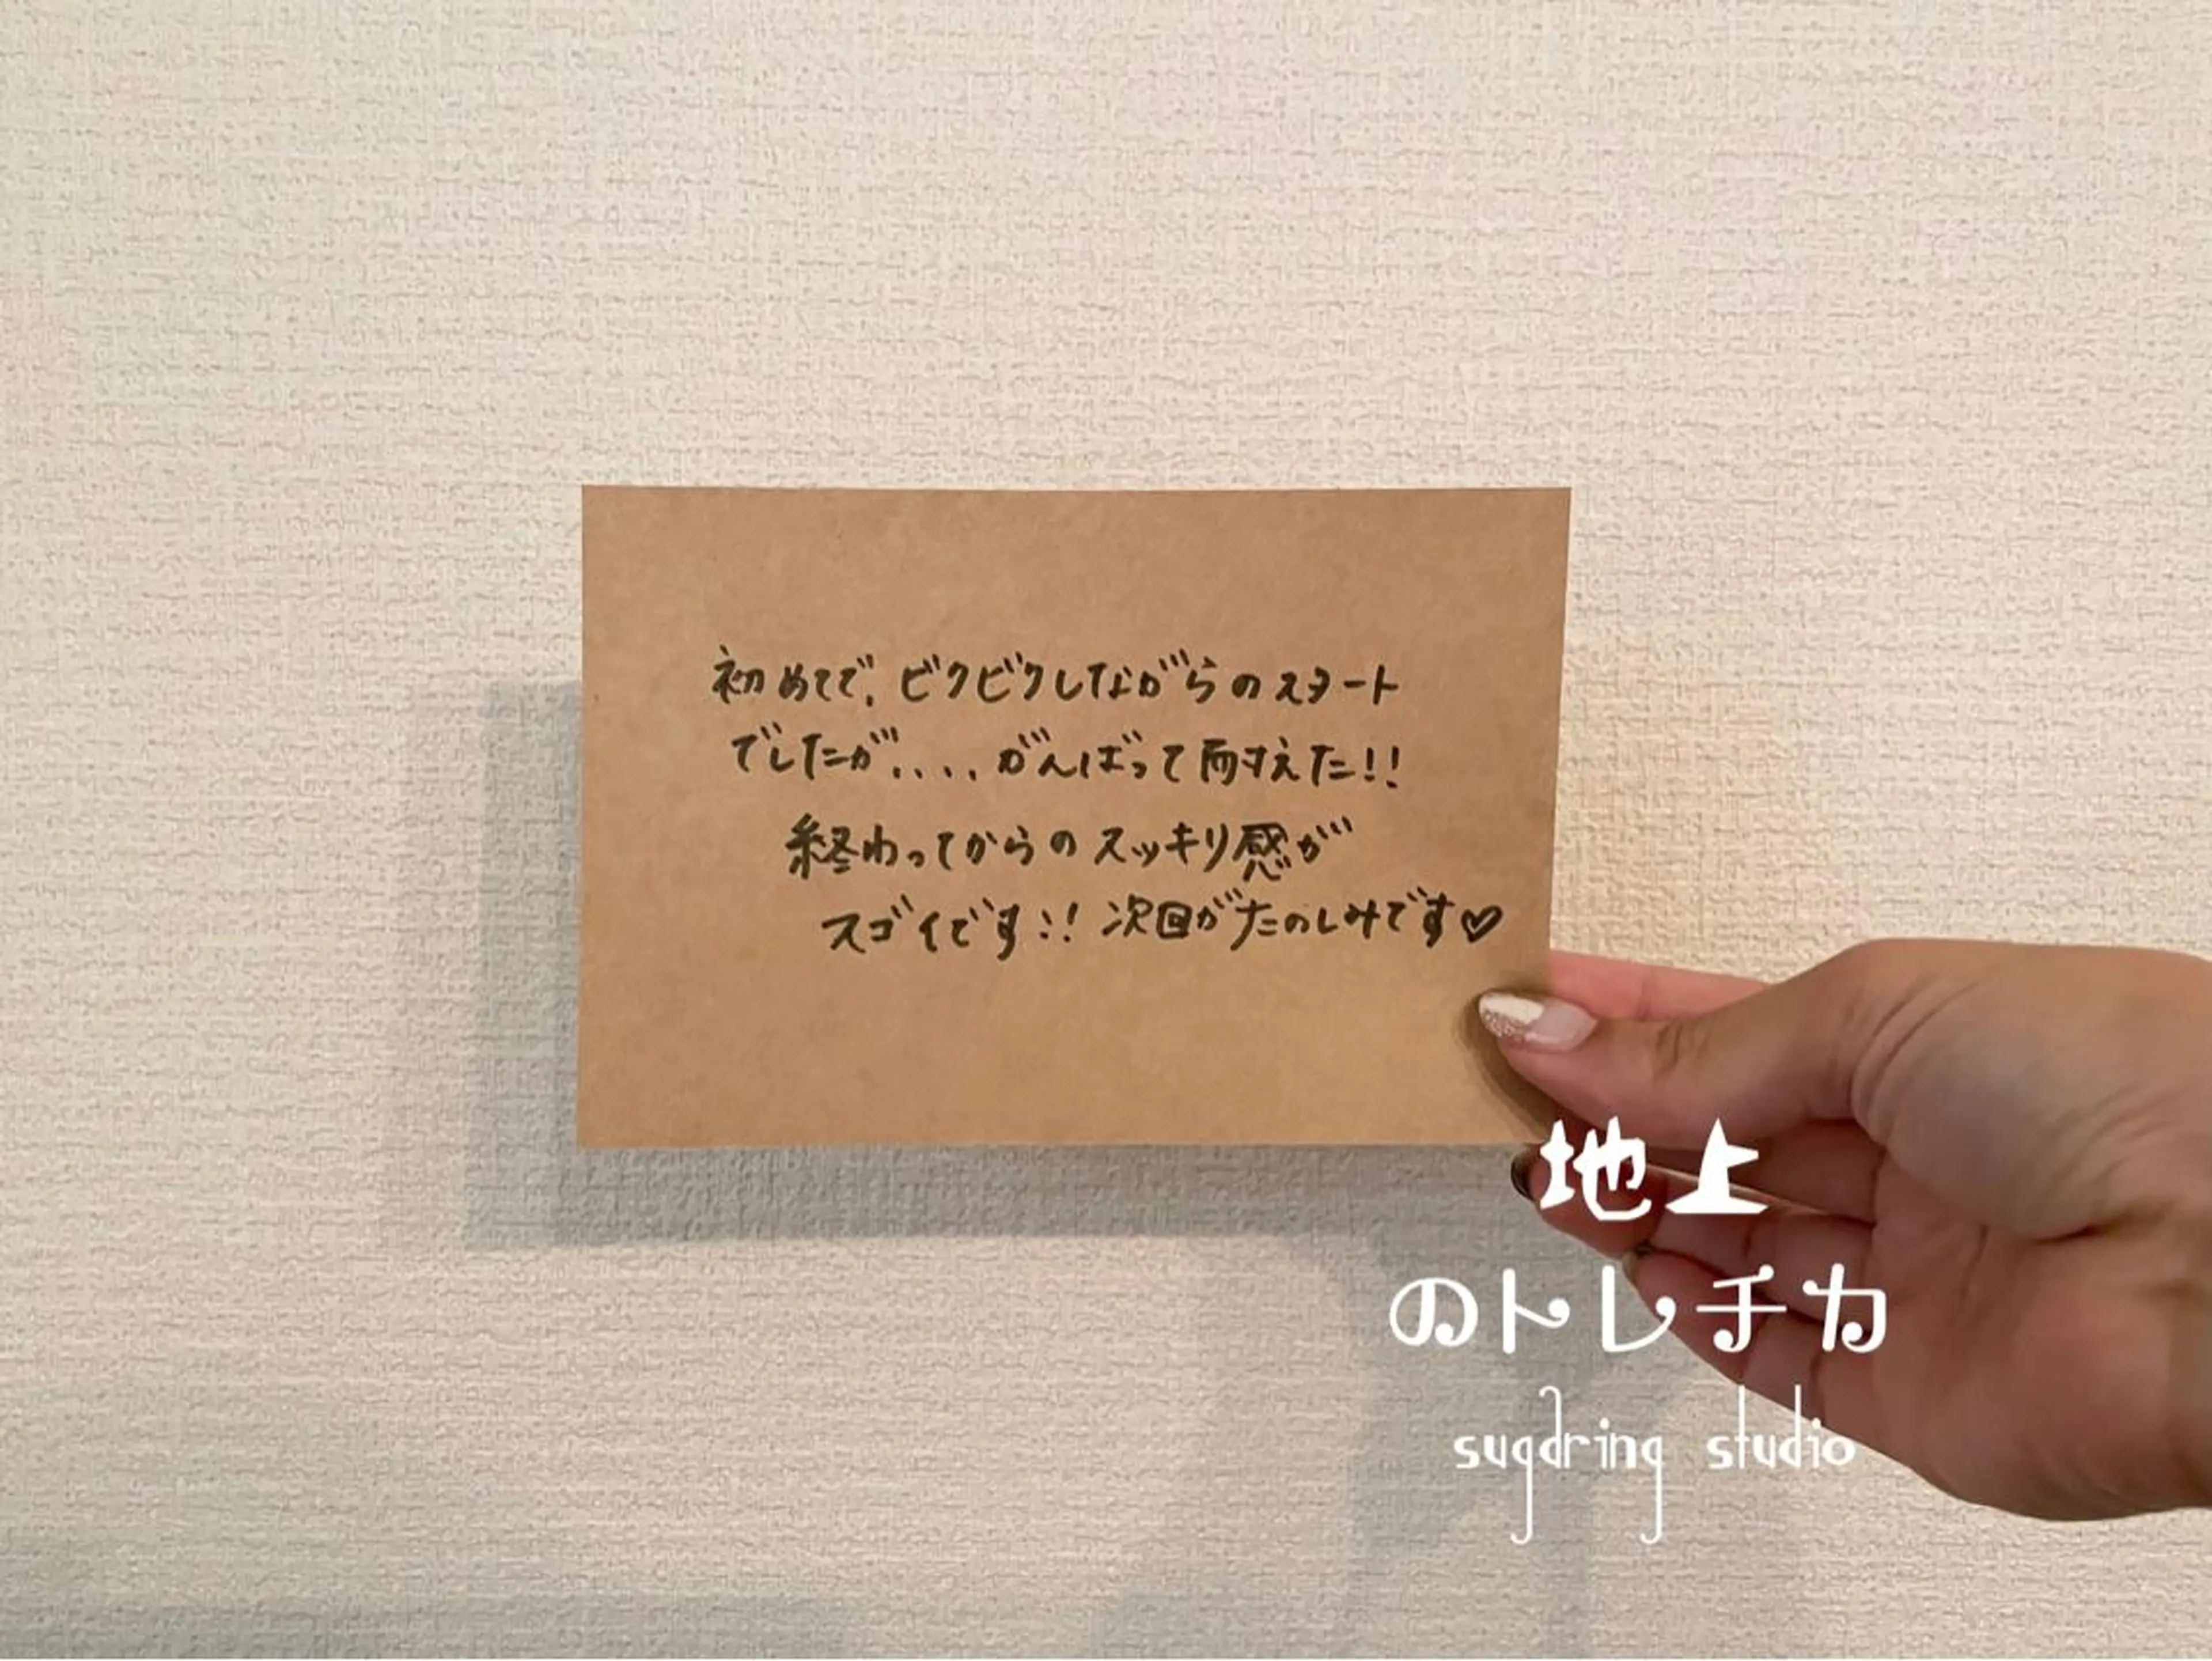 初めてで、ビクビクしながらのスタート
でしたが....がんばって耐えた!!
終わってからのスッキリ感が
スゴイです!!次回がたのしみです♡
地上
のトレチカ
sugdring studio